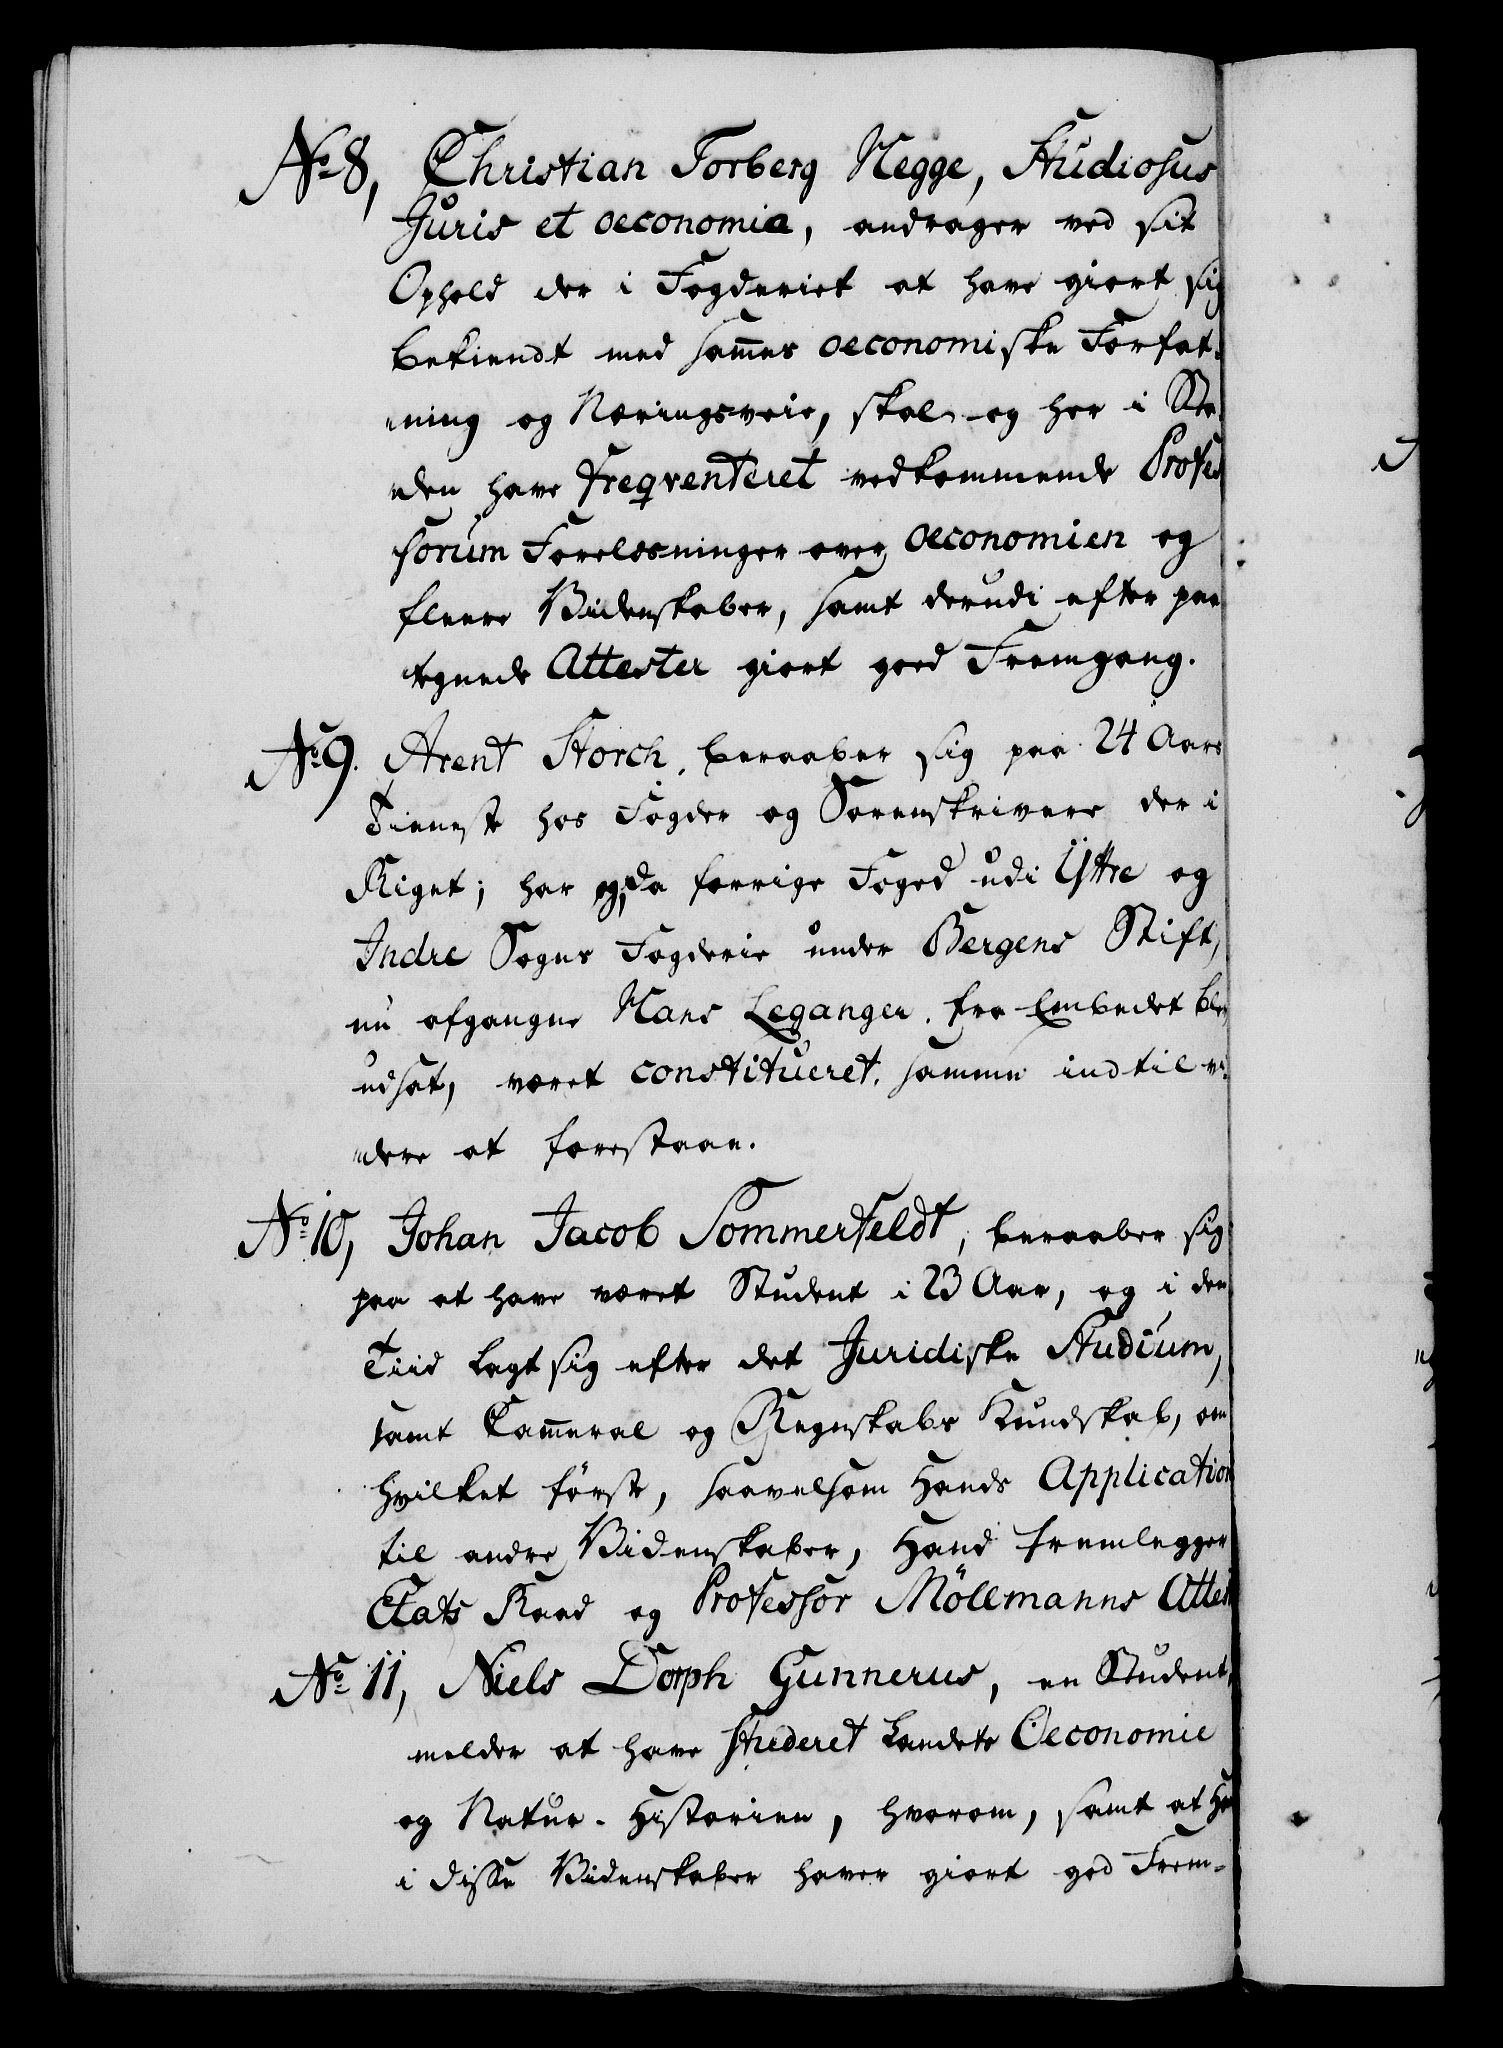 No 8, Christian Torberg Hegge, Studiosus
Juris et oeconomia, andrager ved sit
Ophold der i Fogderiet at have giort sig
bekiendt med sam̅es oeconomiske Forfat-
ning og Næringsveie, skal og her i Sta-
den have freqventeret vedkommende Profes
sorum Forelæsninger over oeconomien og
fleere Videnskaber, samt derudi efter paa
tegnede Attester giort god Fremgang.
No 9. Arent Storch, beraaber sig paa 24 Aars
Tieneste hos Fogder og Sorenskrivere der i
Riget; har og, da forrige Foged udi Ÿttre og
Indre Sogns Fogderie under Bergens Stift,
nu afgangne Hans Leganger, fra Embedet blev
udsat, været constitueret, samme indtil vi-
dere at forestaae.
No 10, Johan Jacob Sommerfeldt, beraaber sig
paa at have været Student i 23 Aar, og i den
Tiid lagt sig efter det Juridiske Studium,
samt Cam̅eral og Regnskabs Kundskab, om
hvilket første, saavelsom Hands Application
til andre Videnskaber, Hand fremlegger
Etats Raad og Professor Möllmanns Attest
No 11, Niels Dorph Gunnerus, en Student,
melder at have studeret Landets Oeconomie
og Natur-Historien, hvorom, samt at Ha
i disse Videnskaber haver giort god Frem-